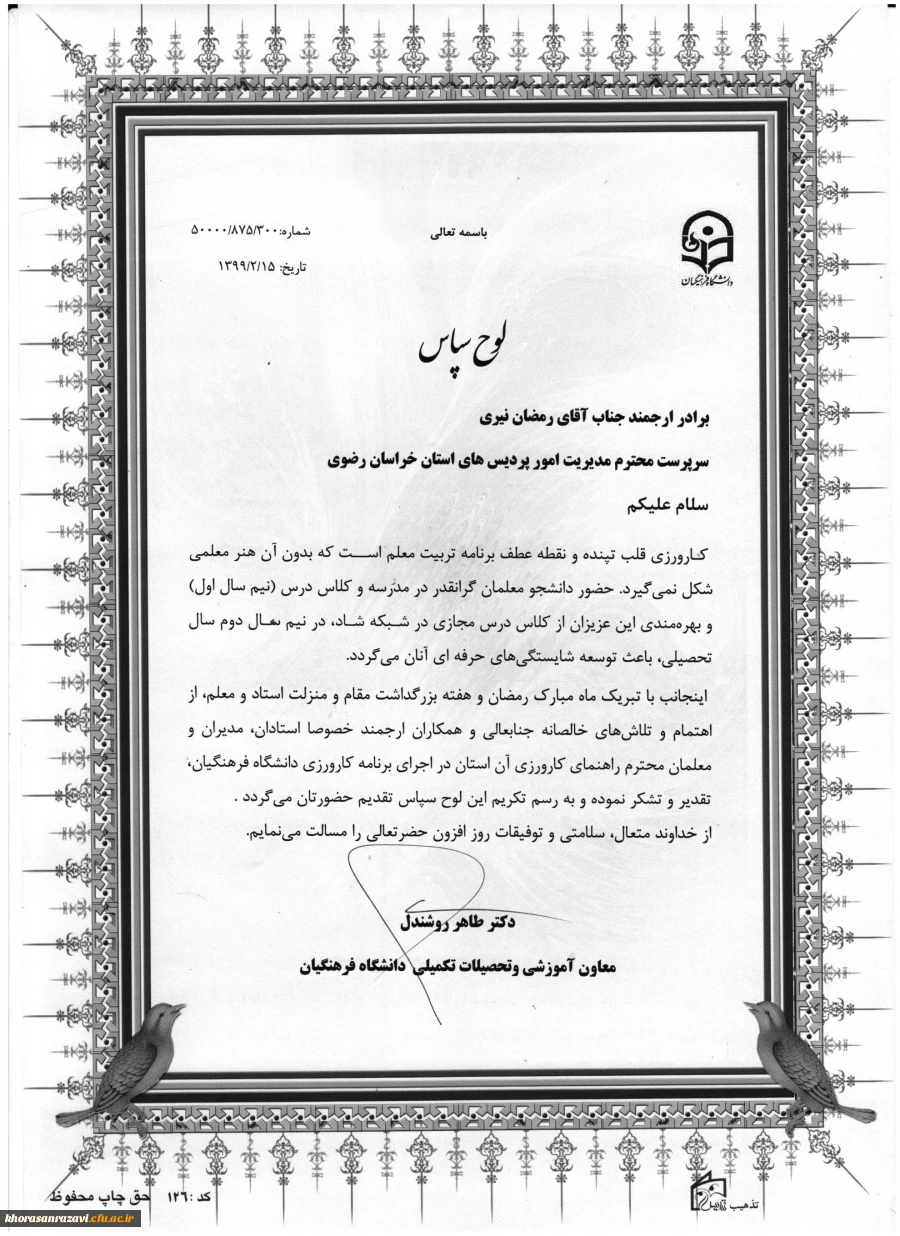 باسمه تعالی
شماره:۵۰۰۰۰/۸۷۵/۳۰۰
تاریخ: ۱۳۹۹/۲/۱۵
دانشگاه فرهنگیان
لوح سپاس
برادر ارجمند جناب آقای رمضان نیری
سرپرست محترم مدیریت امور پردیس های استان خراسان رضوی
سلام علیکم
کارورزی قلب تپنده و نقطه عطف برنامه تربیت معلم است که بدون آن هنر معلمی
شکل نمی‌گیرد. حضور دانشجو معلمان گرانقدر در مدرسه و کلاس درس (نیم سال اول)
و بهره‌مندی این عزیزان از کلاس درس مجازی در شبکه شاد، در نیم سال دوم سال
تحصیلی، باعث توسعه شایستگی‌های حرفه ای آنان می‌گردد.
اینجانب با تبریک ماه مبارک رمضان و هفته بزرگداشت مقام و منزلت استاد و معلم، از
اهتمام و تلاش‌های خالصانه جنابعالی و همکاران ارجمند خصوصا استادان، مدیران و
معلمان محترم راهنمای کارورزی آن استان در اجرای برنامه کارورزی دانشگاه فرهنگیان،
تقدیر و تشکر نموده و به رسم تکریم این لوح سپاس تقدیم حضورتان می‌گردد .
از خداوند متعال، سلامتی و توفیقات روز افزون حضرتعالی را مسالت می‌نمایم.
دکتر طاهر روشندل
معاون آموزشی وتحصیلات تکمیلی دانشگاه فرهنگیان
تذهیب
کد :۱۲٦ حق چاپ محفوظ
khorasanrazavi.cfu.ac.ir